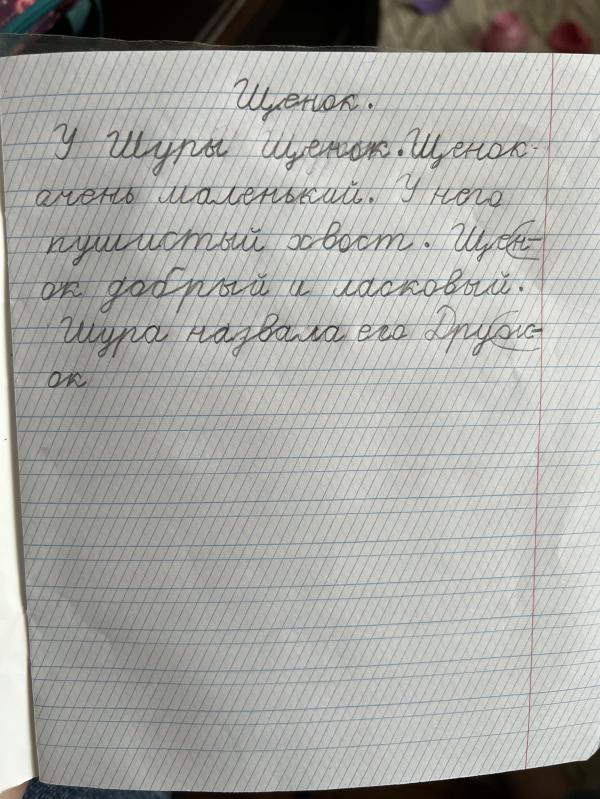 Щенок.
У Шуры щенок. Щенок-
очень маленький. У него
пушистый хвост. Щен-
ок добрый и ласковый.
Шура назвала его Друж-
ок